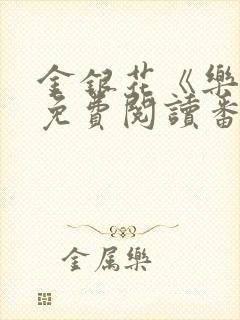 金銀花《樂
免費閱讀番
金属樂